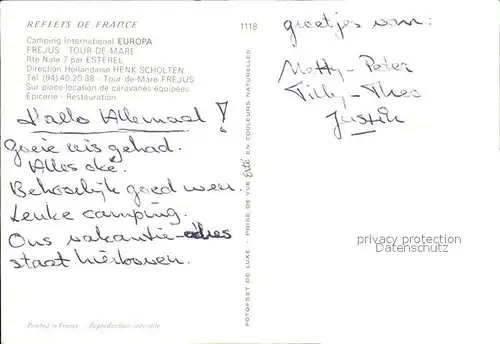 REFLETS DE FRANCE
1118
Camping International EUROPA
FREJUS - TOUR-DE-MARE
Rte Nale 7 par ESTEREL
Direction Hollandaise HENK SCHOLTEN
Tel (94) 40.29 38 - Tour-de-Mare FREJUS
Sur place location de caravanes équipées
Épicerie - Restauration
Hallo Allemaal!
Goeie reis gehad.
Alles oké.
Behoorlijk goed weer.
Leuke camping.
Ons vakantie-adres
staat hierboven.
Printed in France - Reproduction interdite
FOTOFSET DE LUXE - PRISE DE VUE EN COULEURS NATURELLES
groetjes van:
Metty - Peter
Tilly - Theo
Justin
privacy protection
Datenschutz